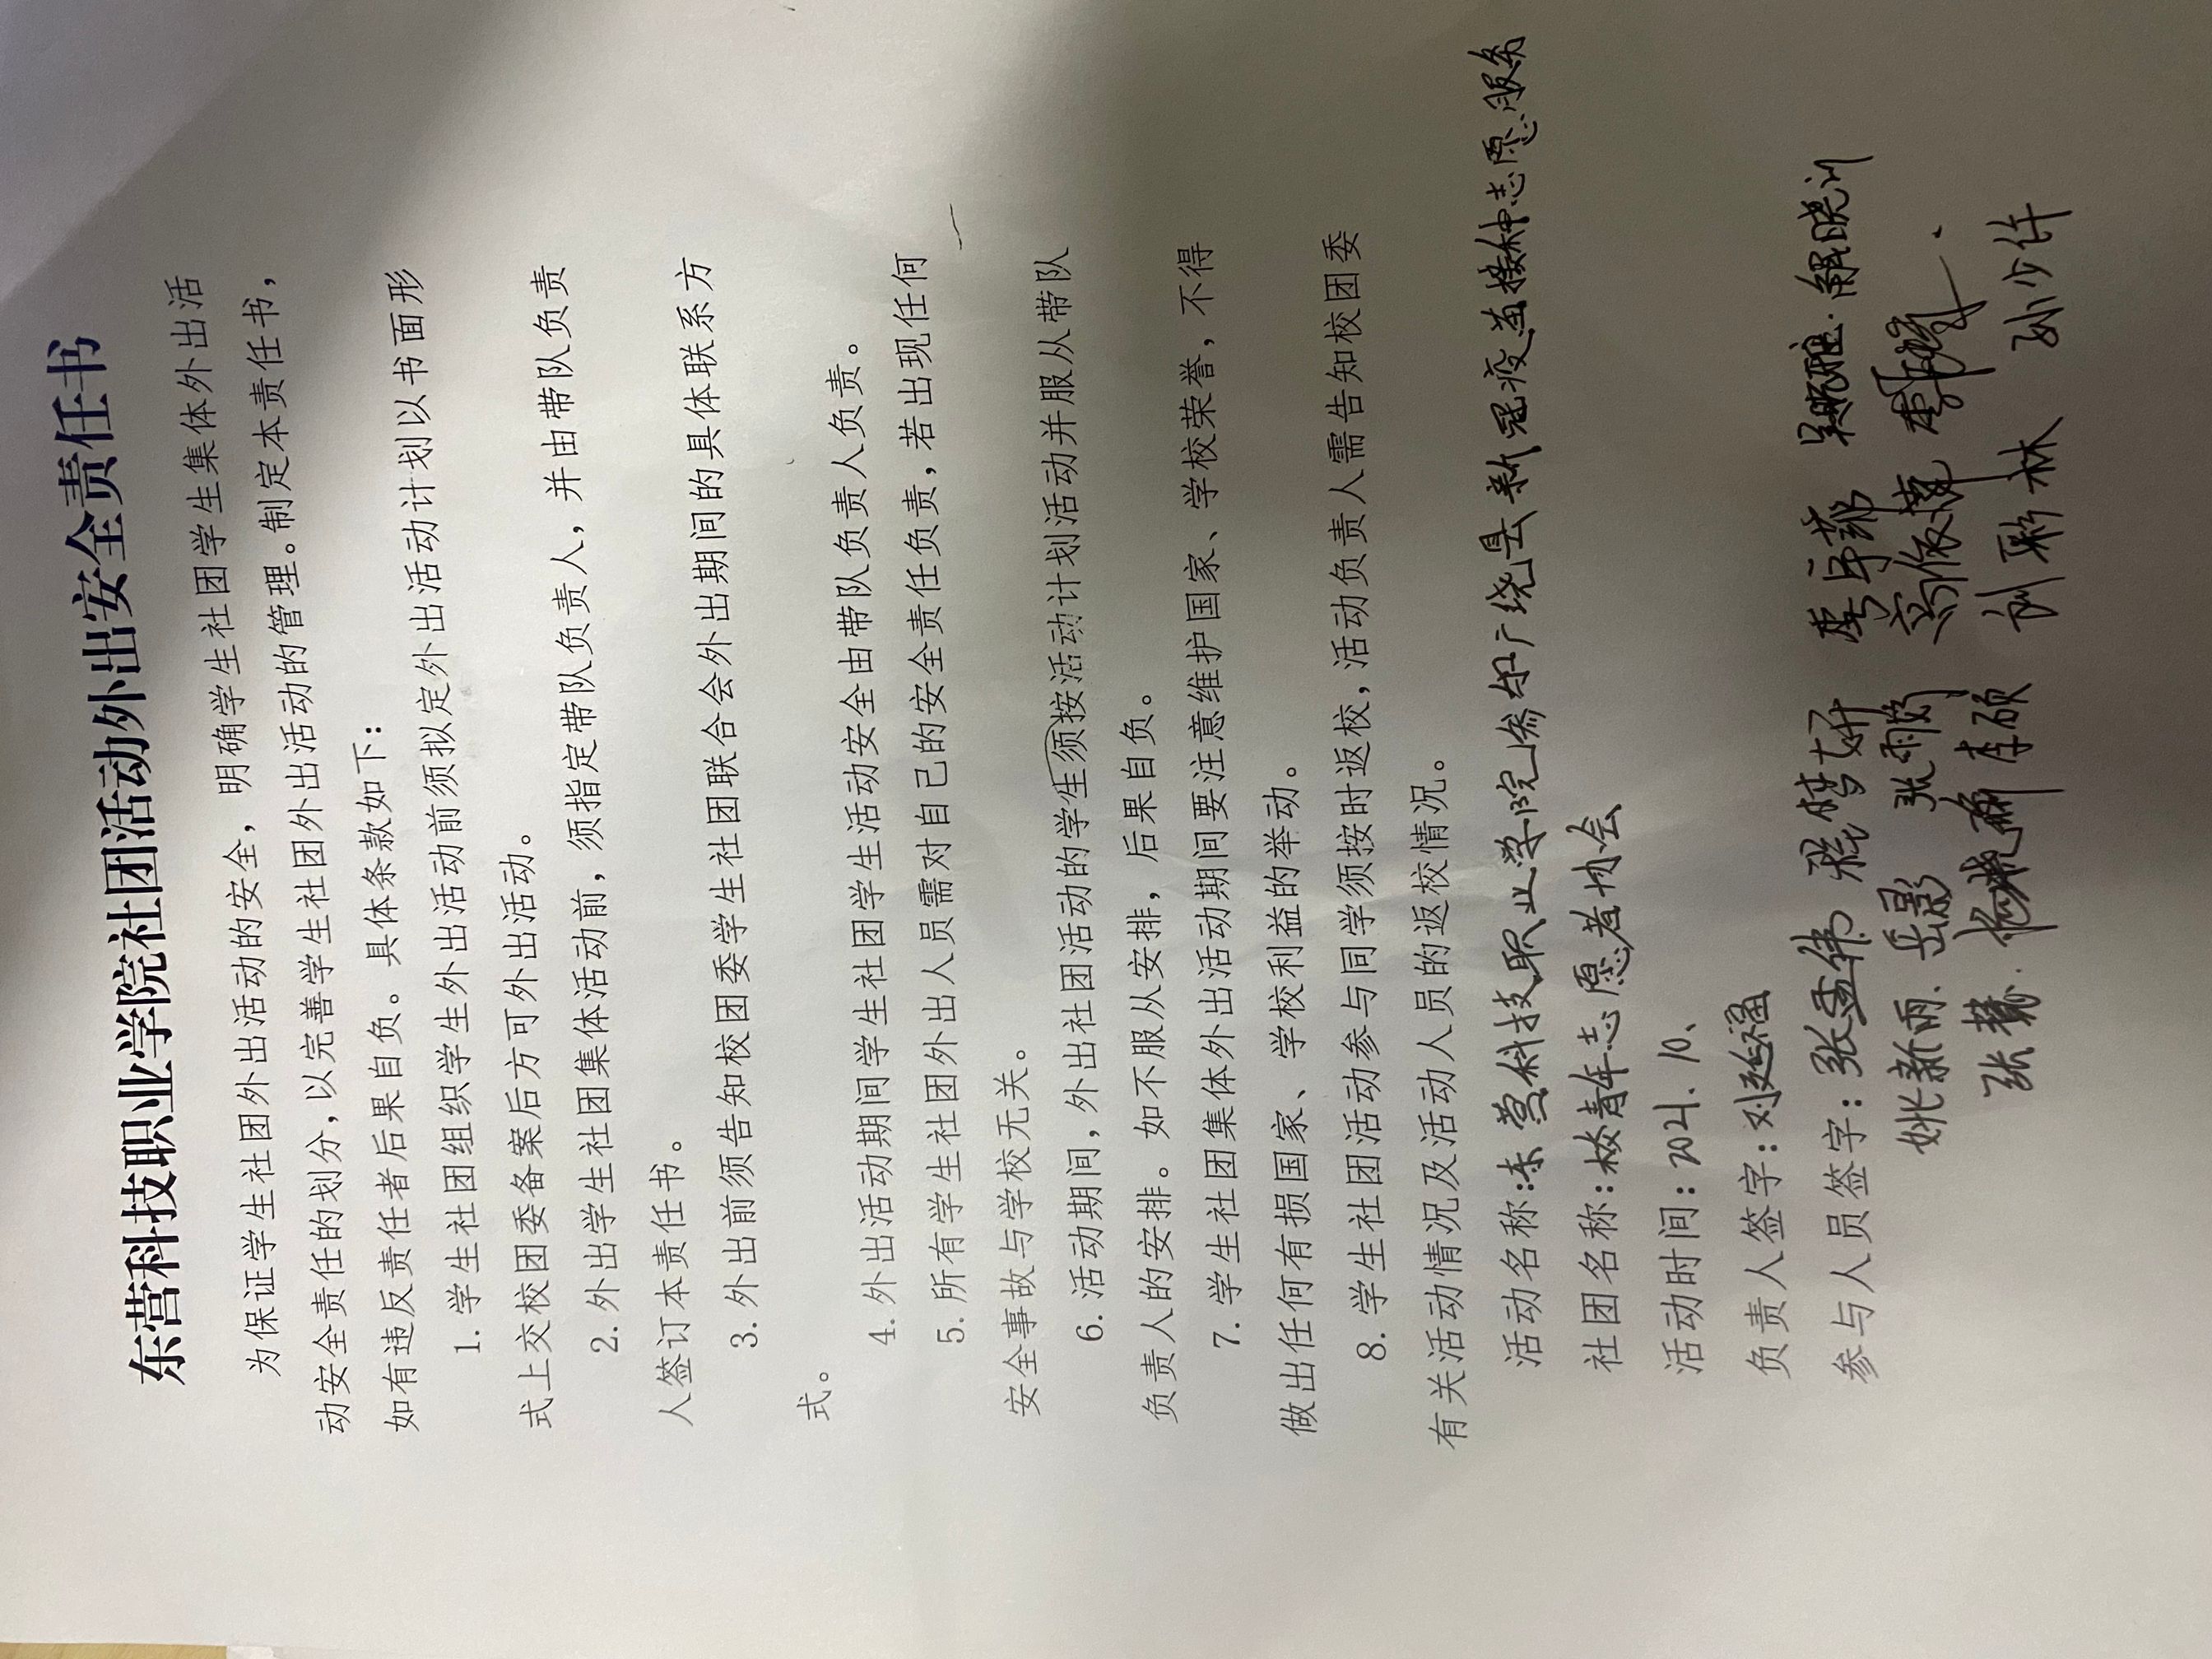 东营科技职业学院社团活动外出安全责任书
为保证学生社团外出活动的安全，明确学生社团学生集体外出活
动安全责任的划分，以完善学生社团外出活动的管理。制定本责任书，
如有违反责任者后果自负。具体条款如下：
1. 学生社团组织学生外出活动前须拟定外出活动计划以书面形
式上交校团委备案后方可外出活动。
2. 外出学生社团集体活动前，须指定带队负责人，并由带队负责
人签订本责任书。
3. 外出前须告知校团委学生社团联合会外出期间的具体联系方
式。
4. 外出活动期间学生社团学生活动安全由带队负责人负责。
5. 所有学生社团外出人员需对自己的安全责任负责，若出现任何
安全事故与学校无关。
6. 活动期间，外出社团活动的学生须按活动计划活动并服从带队
负责人的安排。如不服从安排，后果自负。
7. 学生社团集体外出活动期间要注意维护国家、学校荣誉，不得
做出任何有损国家、学校利益的举动。
8. 学生社团活动参与同学须按时返校，活动负责人需告知校团委
有关活动情况及活动人员的返校情况。
活动名称：东营科技职业学院参加广饶县新冠疫苗接种志愿服务
社团名称：校青年志愿者协会
活动时间：2021.10、
负责人签字：刘延福
参与人员签字：张孟伟 程梦妍 解晓川
姚新雨、岳影 张雨
张慧. 李硕 刘彩林 孙少许